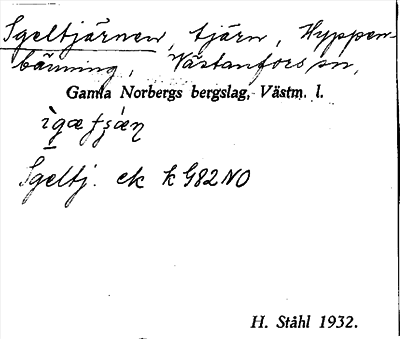 Igeltjärnen, tjärn, Hyppen-
bänning, Västanfors sn,
Gamla Norbergs bergslag, Västm. l.
Igeltj. ek k G82NO
H. Ståhl 1932.